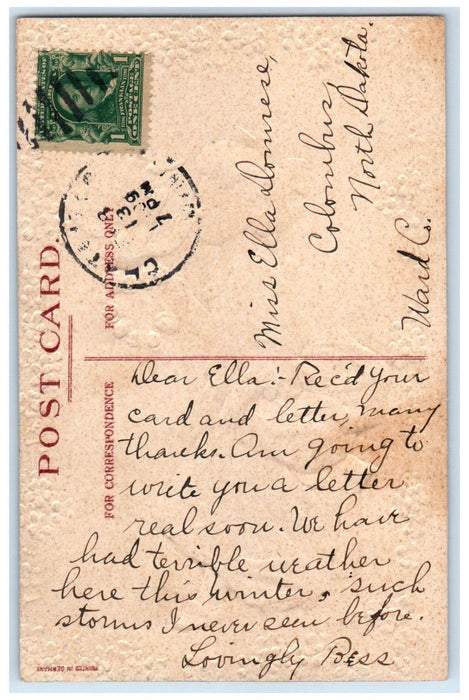 POST CARD
FOR ADDRESS ONLY
FOR CORRESPONDENCE
ONE CENT
Miss Ella Domrese,
Columbus,
North Dakota.
Ward Co.
Dear Ella:- Rec'd your
card and letter, many
thanks. Am going to
write you a letter
real soon. We have
had terrible weather
here this winter, such
storms I never seen before.
Lovingly Bess
PRINTED IN GERMANY